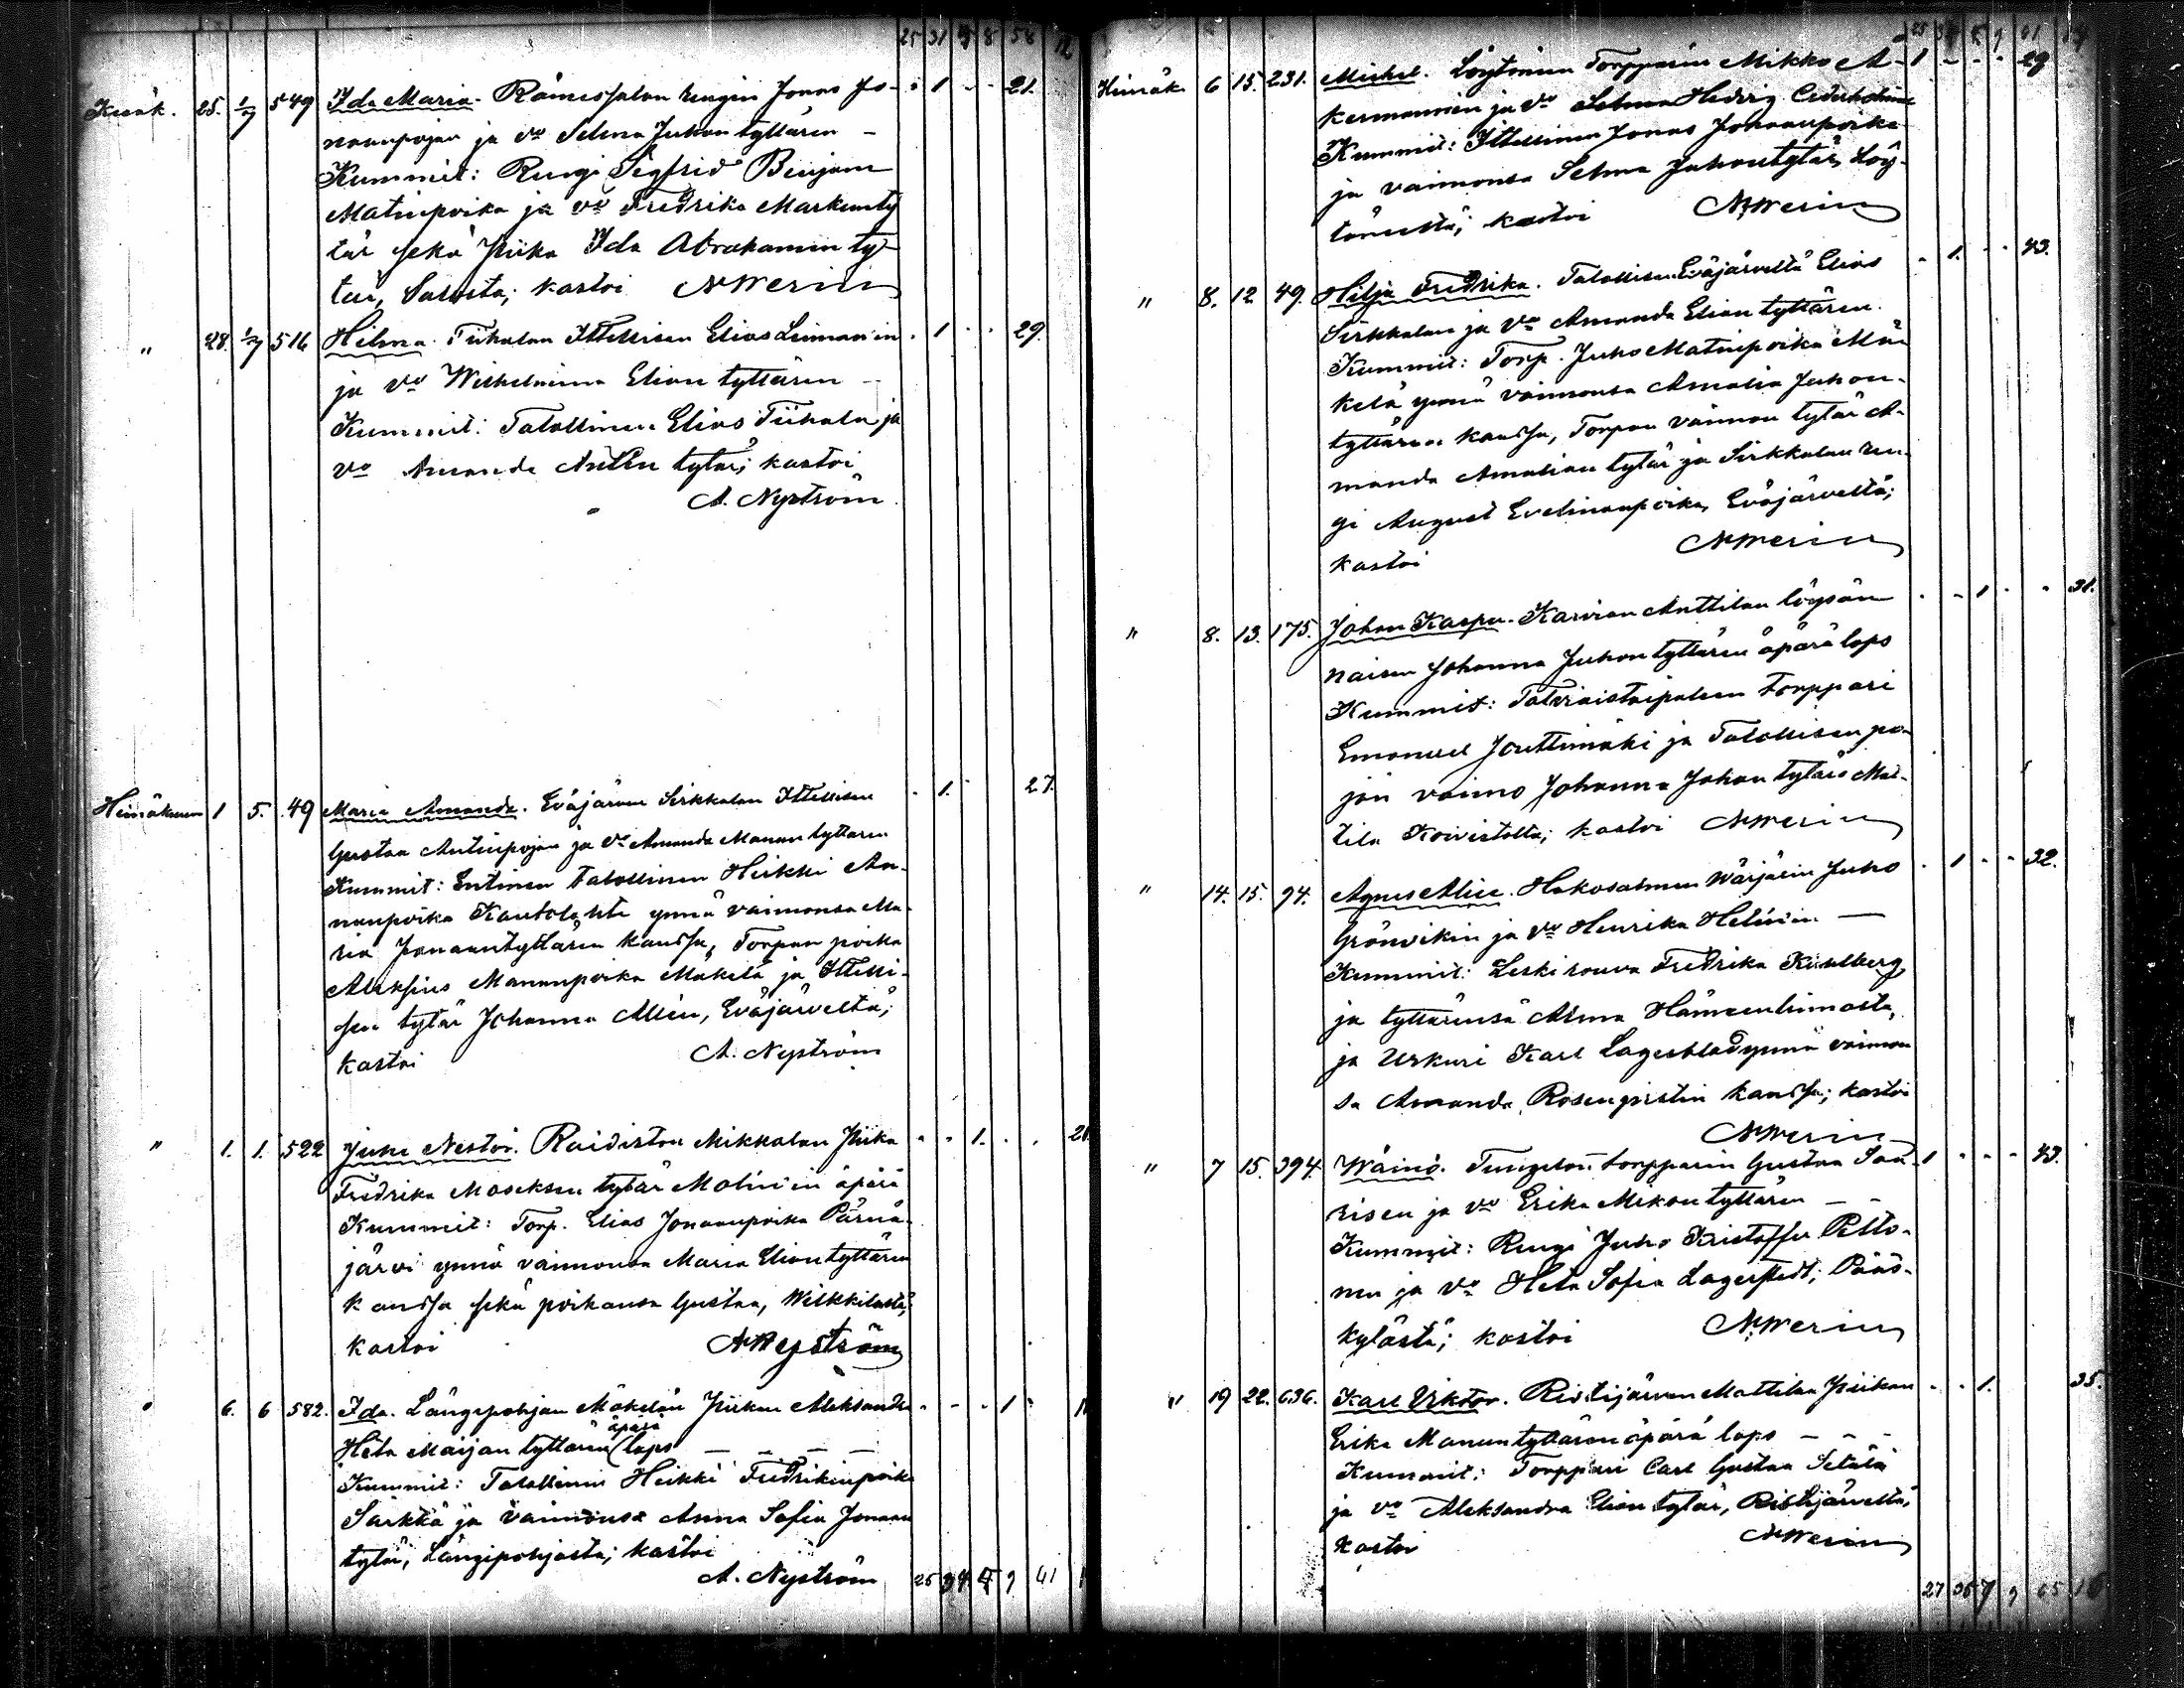 25 31 8 58 12
Kesäk. 25. 1/7 549 Ida Maria. Rämessalon rengin Jonas Jo- 1 21.
nanpojan ja vo Selma Juhon tyttären –
Kummit: Rengi Sigfrid Benjam
Matinpoika ja vo Fredrika Markunty
tär sekä Piika Ida Abrahamin ty-
tär, Salosta; kastoi
" 28. 1/7 516 Hilma. Tiihalan Itellisen Elias Leinosen 1 29.
ja vo Wilhelmina Elian tyttären –
Kummit: Talollinen Elias Tiihala ja
vo Amanda Antin tytär; kastoi
A. Nyström
Heinäkuun 1 5. 49 Maria Amanda. Eväjärven Sirkkalan Itellisen 1. 27.
Gustaa Antinpojan ja vo Amanda Manun tyttären
Kummit: Entinen talollinen Heikki An-
nanpoika Kautolahti ynnä vaimonsa Ma-
ria Jonaantyttären kanssa, Torpan poika
Aleksius Manunpoika Mäkelä ja Itelli-
sen tytär Johanna Allén, Eväjärveltä;
kastoi A. Nyström
" 1. 1. 522 Juho Nestor. Raidiston Mikkolan Piika 1. 21
Fredrika Moseksen tytär Malinin äpärä
Kummit: Torp. Elias Jonaanpoika Pärnä-
järvi ynnä vaimonsa Maria Eliantyttären
kanssa sekä poikansa Gustaa, Wilkkilästä;
kastoi A Nyström
6. 6 582. Ida. Längepohjan Mäkelän Piikan Aleksandra 1
äpärä
Heta Maijan tyttären laps – – – –
Kummit: Talollinen Heikki Fredrikinpoika
Särkkä ja vaimonsa Anna Sofia Jonaan
tytär, Längipohjasta; kastoi
A. Nyström 25 34 9 41
Heinäk. 6 15. 231. Michel. Löytänen Torpparin Mikko A- 1 29
kermannin ja vo Selma Hedvig Cederholmin
Kummit: Itellinen Jonas Jonaanpoika
ja vaimonsa Selma Juhontytär, Löy-
täneeltä; kastoi
" 8. 12 49. Hilja Fredrika. Talollisen Eväjärveltä Elias 1. 43.
Sirkkalan ja vo Amanda Elian tyttären.
Kummit: Torp. Juho Matinpoika Mä-
kelä ynnä vaimonsa Amalia Juhon-
tyttären kanssa, Torpan vaimon tytär A-
manda Amalian tytär ja Sirkkalan ren-
gi August Evelinanpoika, Eväjärveltä;
kastoi
" 8. 13. 175. Johan Kasper. Karvian Anttilan löysän 1 31.
naisen Johanna Juhon tyttären äpärä laps
Kummit: Talviaistaipaleen torppari
Emanuel Jouttimäki ja Talollisen po-
jan vaimo Johanna Johan tytär Mat-
tila Koivistolta; kastoi
" 14. 15. 94. Agnes Alice. Hakosalmen Wärjärin Juho 1 32.
Grönvikin ja vo Henrika Helinin –
Kummit: Leski rouva Fredrika Kihlberg
ja tyttärensä Alma Hämeenlinnasta,
ja Urkuri Karl Lagerblad ynnä vaimon
sa Amanda Rosenqvistin kanssa; kastoi
" 7 15. 394. Wäinö. Tungelon torpparin Gustaa Saa- 1 43.
risen ja vo Erika Mikon tyttären – –
Kummit: Rengi Juho Kristoffer Pelto-
nen ja vo Heta Sofia Lagerstedt; Pääs-
kylästä; kastoi
" 19 22. 636. Karl Viktor. Ristijärven Mattilan Piikan 1. 35.
Erika Manuntyttären äpärä laps – – –
Kummit: Torppari Carl Gustaa Setälä
ja vo Aleksandra Elian tytär, Ristijärveltä;
kastoi
27 36 7 9 65 16